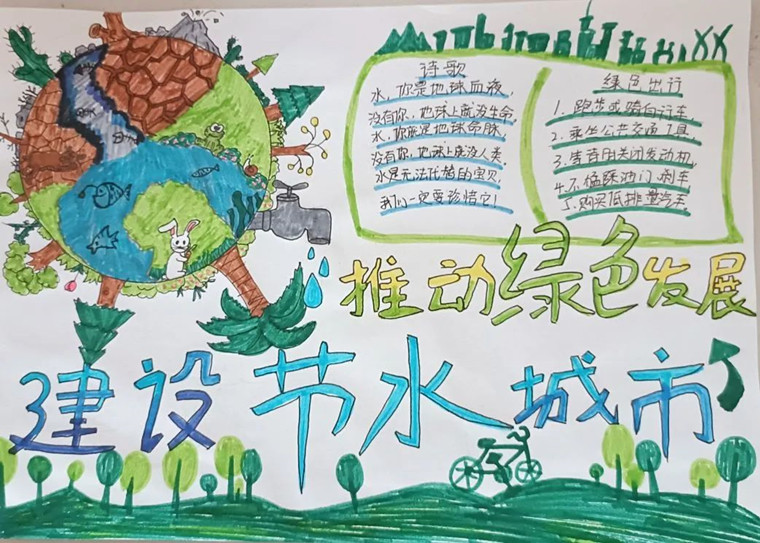 诗歌
水,你是地球血液,
没有你,地球上就没生命
水,你就是地球命脉,
没有你,地球上就没人类,
水是无法代替的宝贝,
我们一定要珍惜它!
绿色出行
1.跑步或骑自行车
2.乘坐公共交通工具
3.堵车时关闭发动机
4.不猛踩油门、刹车
5.购买低排量汽车
推动绿色发展
建设节水城市